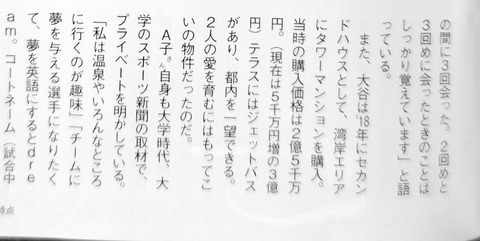 の間に３回会った。２回めと
３回めに会ったときのことは
しっかり覚えています」と語
っている。
　また、大谷は'18年にセカン
ドハウスとして、湾岸エリア
にタワーマンションを購入。
当時の購入価格は２億５千万
円。（現在は５千万円増の３億
円）テラスにはジェットバス
があり、都内を一望できる。
２人の愛を育むにはもってこ
いの物件だったのだ。
　Ａ子さん自身も大学時代、大
学のスポーツ新聞の取材で、
プライベートを明かしている。
「私は温泉やいろんなところ
に行くのが趣味」「チームに
夢を与える選手になりたく
て、夢を英語にするとｄｒｅ
ａｍ。コートネーム（試合中
時点